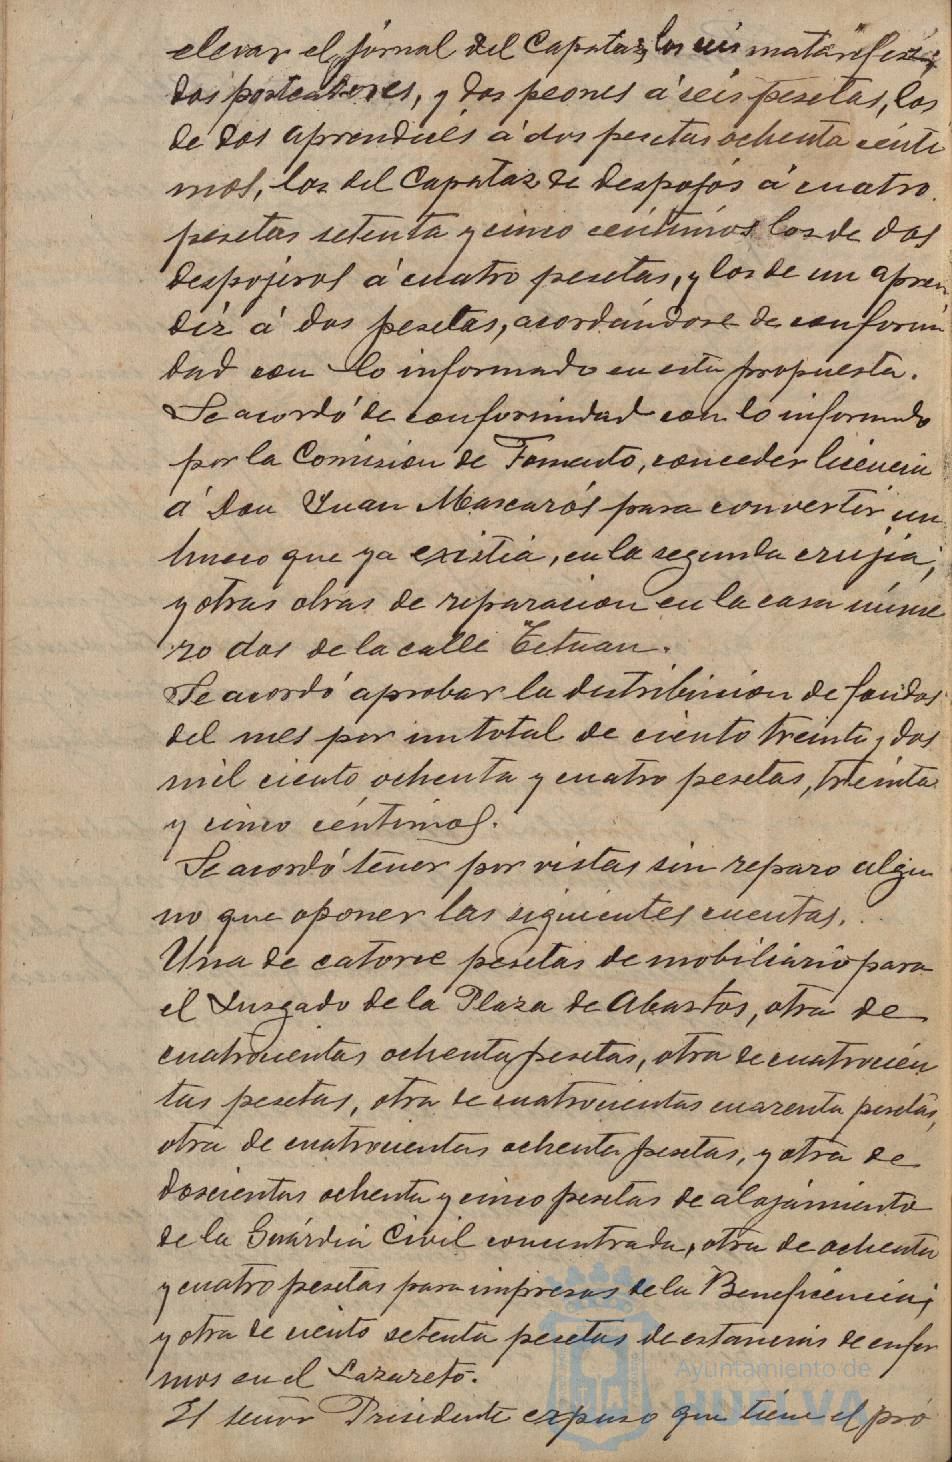 elevar el jornal del Capataz, los seis matarifes,
dos porteadores, y dos peones á seis pesetas, los
de dos aprendices á dos pesetas ochenta cénti
mos, los del Capataz de despojos á cuatro
pesetas setenta y cinco céntimos los de dos
despojeros á cuatro pesetas, y los de un apren
diz á dos pesetas, acordándose de conformi
dad con lo informado en esta propuesta.
Se acordó de conformidad con lo informado
por la Comision de Fomento, conceder licencia
á Don Juan Mascarós para convertir un
hueco que ya existia, en la segunda crujia,
y otras obras de reparacion en la casa núme
ro dos de la calle Tetuan.
Se acordó aprobar la distribucion de fondos
del mes por un total de ciento treinta y dos
mil ciento ochenta y cuatro pesetas, treinta
y cinco céntimos.
Se acordó tener por vistas sin reparo algu
no que oponer las siguientes cuentas.
Una de catorce pesetas de mobiliario para
el Juzgado de la Plaza de Abastos, otra de
cuatrocientas ochenta pesetas, otra de cuatrocien
tas pesetas, otra de cuatrocientas cuarenta pesetas,
otra de cuatrocientas ochenta pesetas, y otra de
doscientas ochenta y cinco pesetas de alojamiento
de la Guardia Civil concentrada, otra de ochenta
y cuatro pesetas para impresos de la Beneficencia,
y otra de ciento setenta pesetas de estancias de enfer
mos en el Lazareto.
El señor Presidente expuso que tiene el pro
Ayuntamiento de
HUELVA